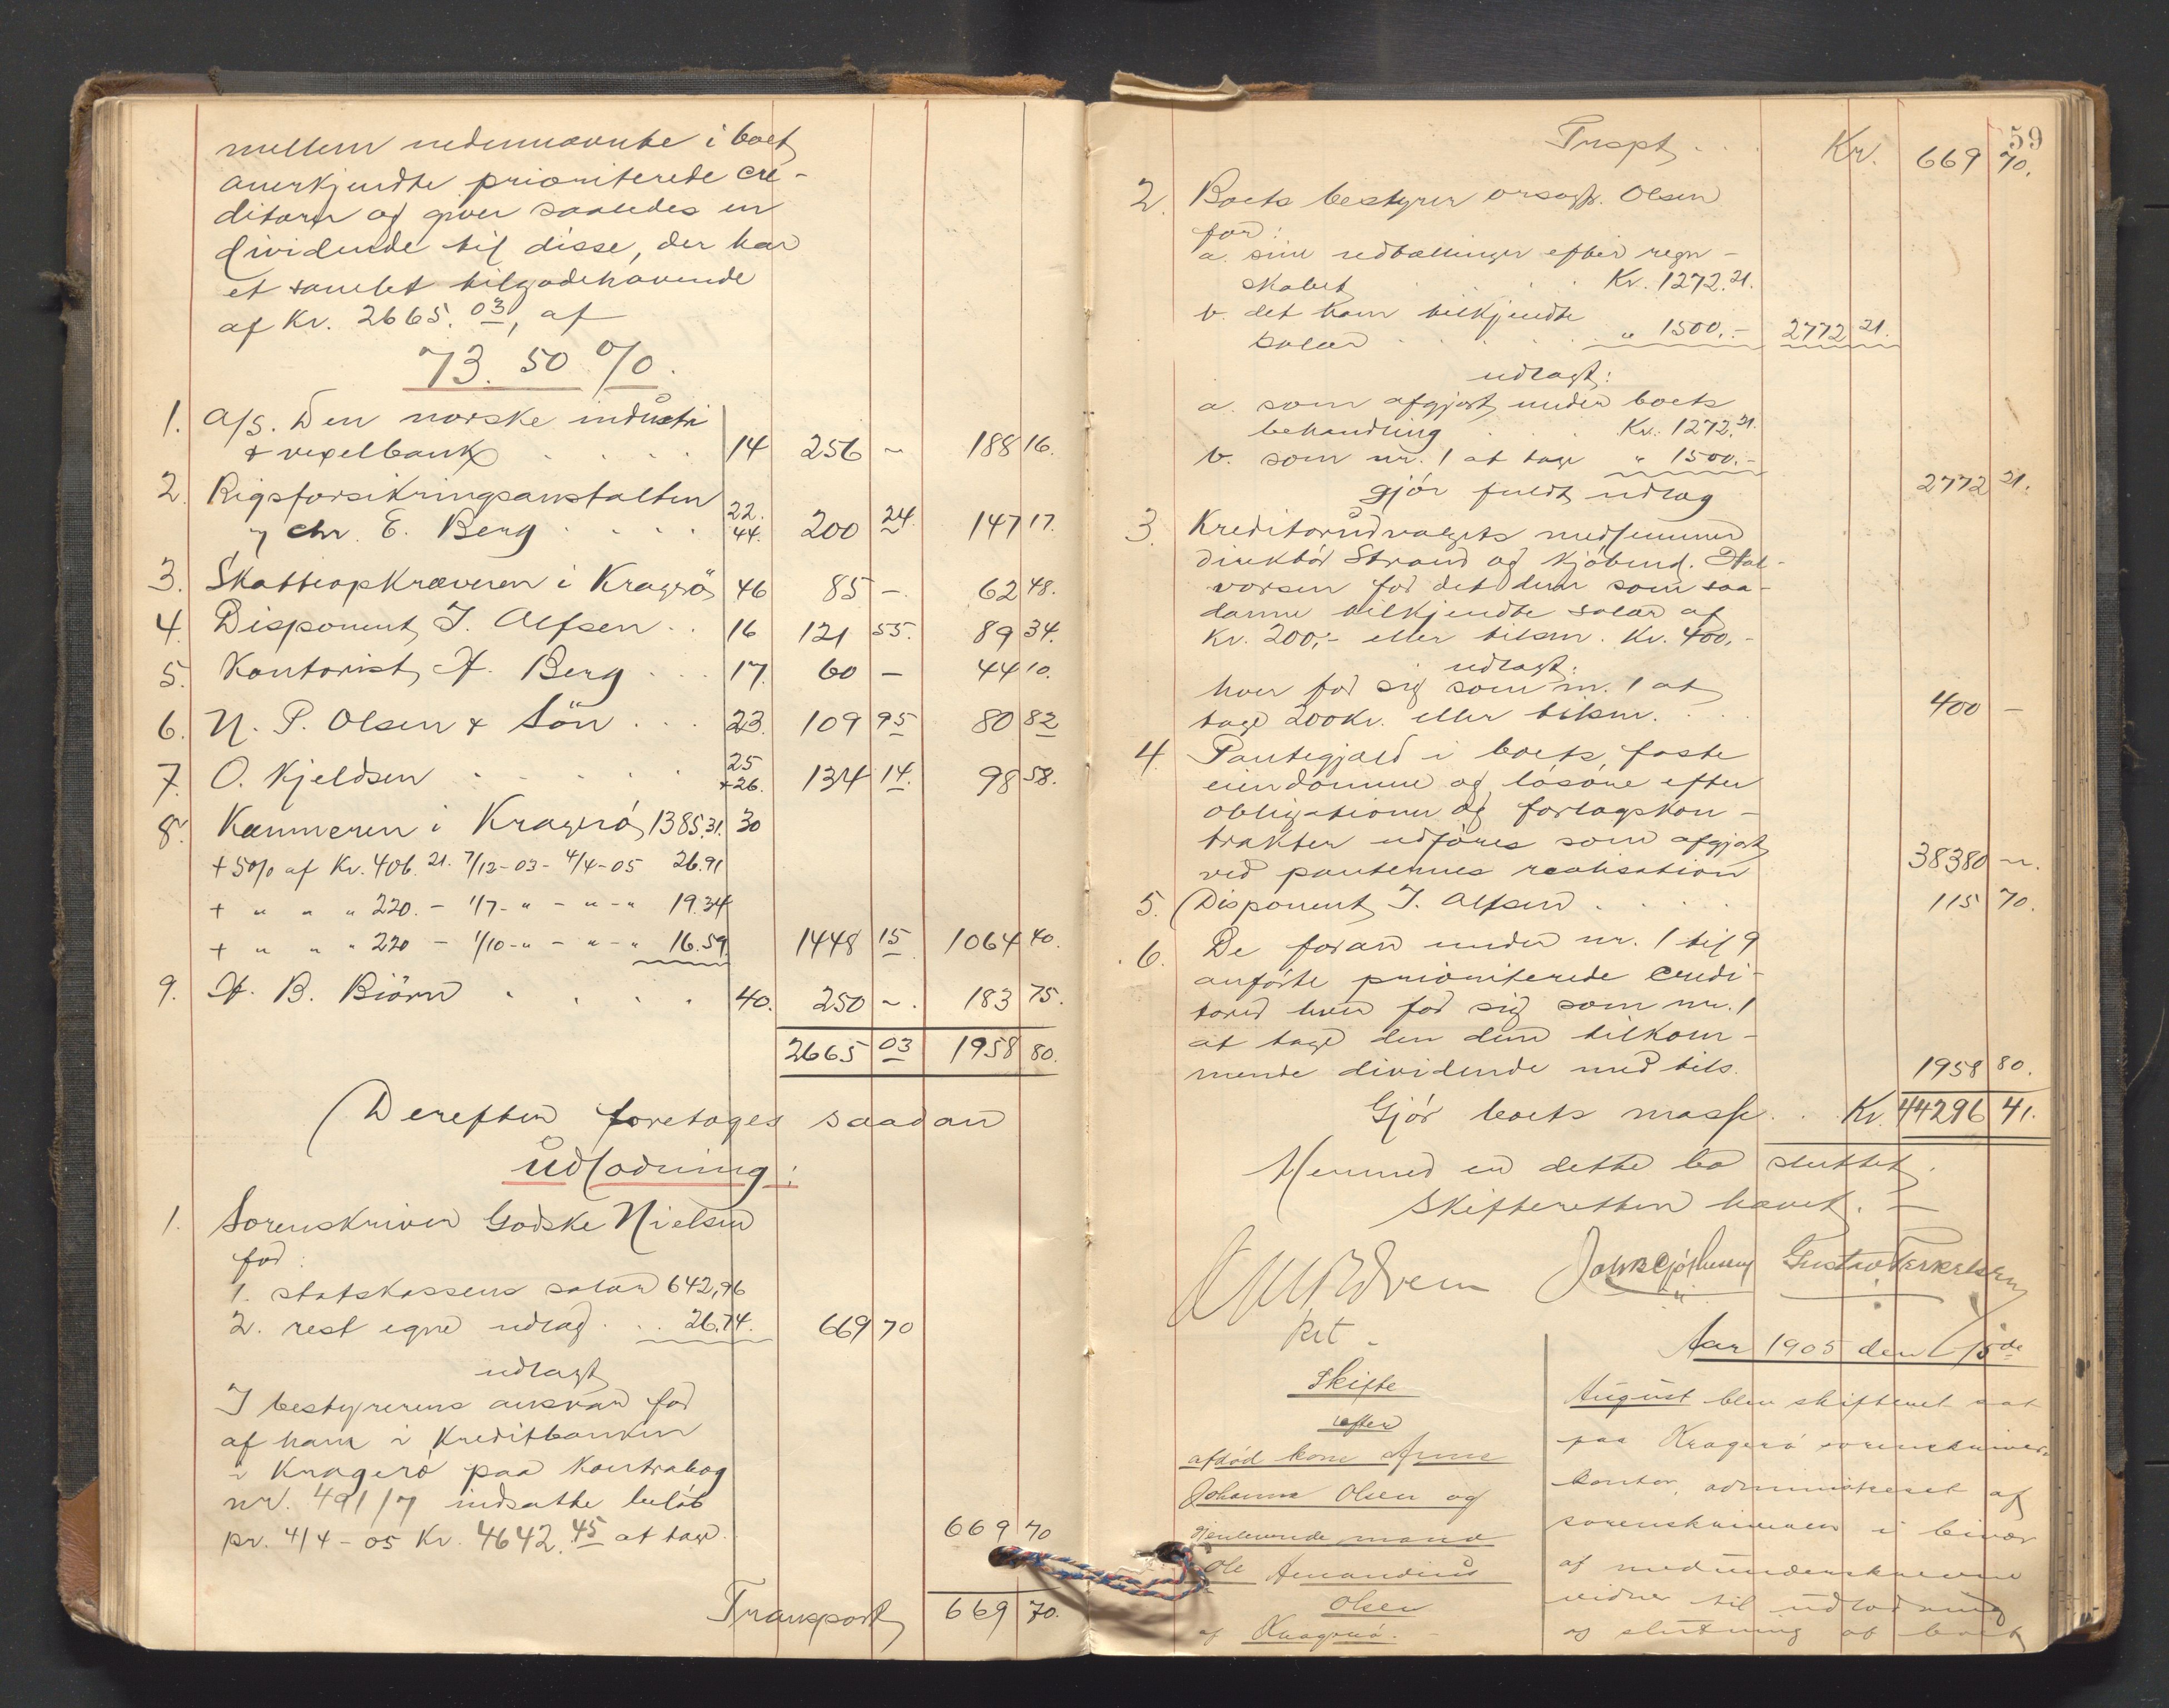 mellem nedennævnte i boet
anerkjendte prioriterede cre-
ditorer og giver saaledes en
dividende til disse, der har
et samlet tilgodehavende
af Kr. 2665.03, af
73.50 %.
1. A/S. Den norske industri
& vexelbank . . . . 14 256 ~ 188 16.
2. Rigsforsikringsanstalten
v/ Chr. E. Berg . . . . 22. 44. 200 24. 147 17.
3. Skatteopkræveren i Kragerö 46 85 -. 62 48.
4. Disponent J. Alfsen . . 16 121 55. 89 34.
5. Kontorist H. Berg . . . 17. 60 - 44 10.
6. N. P. Olsen & Sön . . . 23. 109 95 80 82
7. O. Kjeldsen . . . . . 25 +26. 134 14. 98 58.
8. Kæmneren i Kragerö 1385.31. 30
+ 5% af Kr. 406.21. 7/12-03 - 4/4-05 26.91
+ " " " 220. - 1/7- " - " - " 19.34
+ " " " 220 - 1/10 - " - " - " 16.59. 1448 15 1064 40.
9. H. B. Biörn . . . . 40. 250 ~. 183 75.
2665 03 1958 80.
Derefter foretoges saadan
udlodning:
1. Sorenskriver Godske Nielsen
for:
1. statskassens salær 642,96
2. rest egne udlæg . . . 26.74. 669 70
udlagt
I bestyrerens ansvar for
af ham i Kreditbanken
i Kragerö paa Kontrabog
nr. 491/7 indsatte beløb
pr. 4/4-05 Kr. 4642.45 at tage. 669 70
Transport 669 70.
59
Trspt . . . Kr. 669 70.
2. Boets bestyrer orsagf. Olsen
for:
a. sine udbetalinger efter regn-
skabet . . . . Kr. 1272.21.
b. det ham tilkjendte
salær . . . . . " 1500.- 2772 21.
udlagt:
a. som afgjort under boets
behandling . . . Kr. 1272.21.
b. som nr. 1 at tage " 1500.-
gjör fuldt udlæg 2772 21.
3. Kreditorudvalgets medlemmer
direktör Strand og kjöbmd. Hal-
vorsen for det dem som saa-
danne tilkjendte salær af
Kr. 200,- eller tilsm. Kr. 400,-
udlagt:
hver for sig som nr. 1 at
tage 200 Kr. eller tilsm. . . . 400 -
4. Pantegjæld i boets faste
eiendomme og lösöre efter
obligationer og forlagskon-
trakter udföres som afgjort
ved panternes realisation 38380 ~.
5. Disponent J. Alfsen . . . . . 115 70.
6. De foran under nr. 1 til 9
anförte prioriterede credi-
torer hver for sig som nr. 1
at tage den dem tilkom-
mende dividende med tils. 1958 80.
Gjör boets masse. . . Kr. 44296 41.
Hermed er dette bo sluttet.
Skifteretten hævet. -
Gustav Terkelsen
Aar 1905 den 15de
Skifte
efter
afdöd kone Anne
Johanne Olsen og
gjenlevende mand
Ole Amandius
Olsen
af Kragerö.
August blev skifteret sat
paa Kragerö sorenskriver-
kontor, administreret af
sorenskriveren i bivær
af medunderskrevne
vidner til udlodning
og slutning af boet